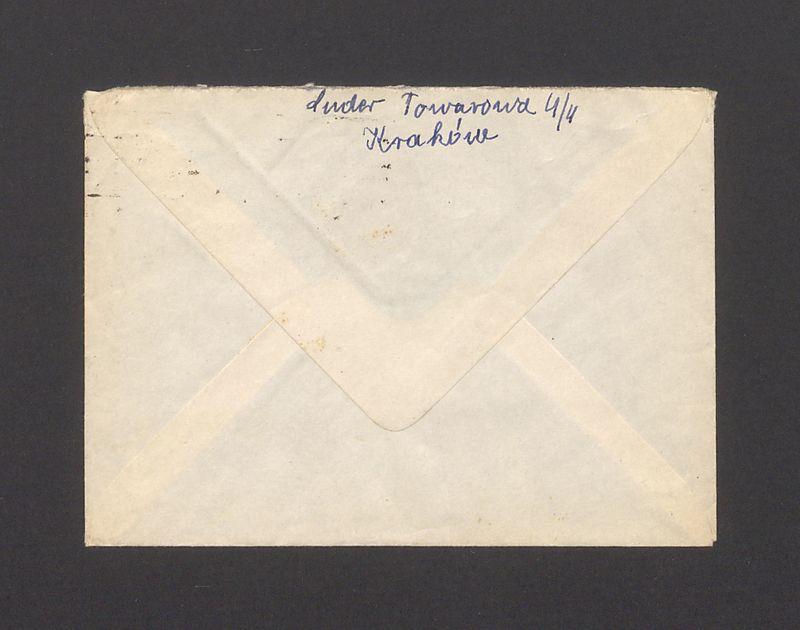 Luder Towarowa 4/4
Kraków